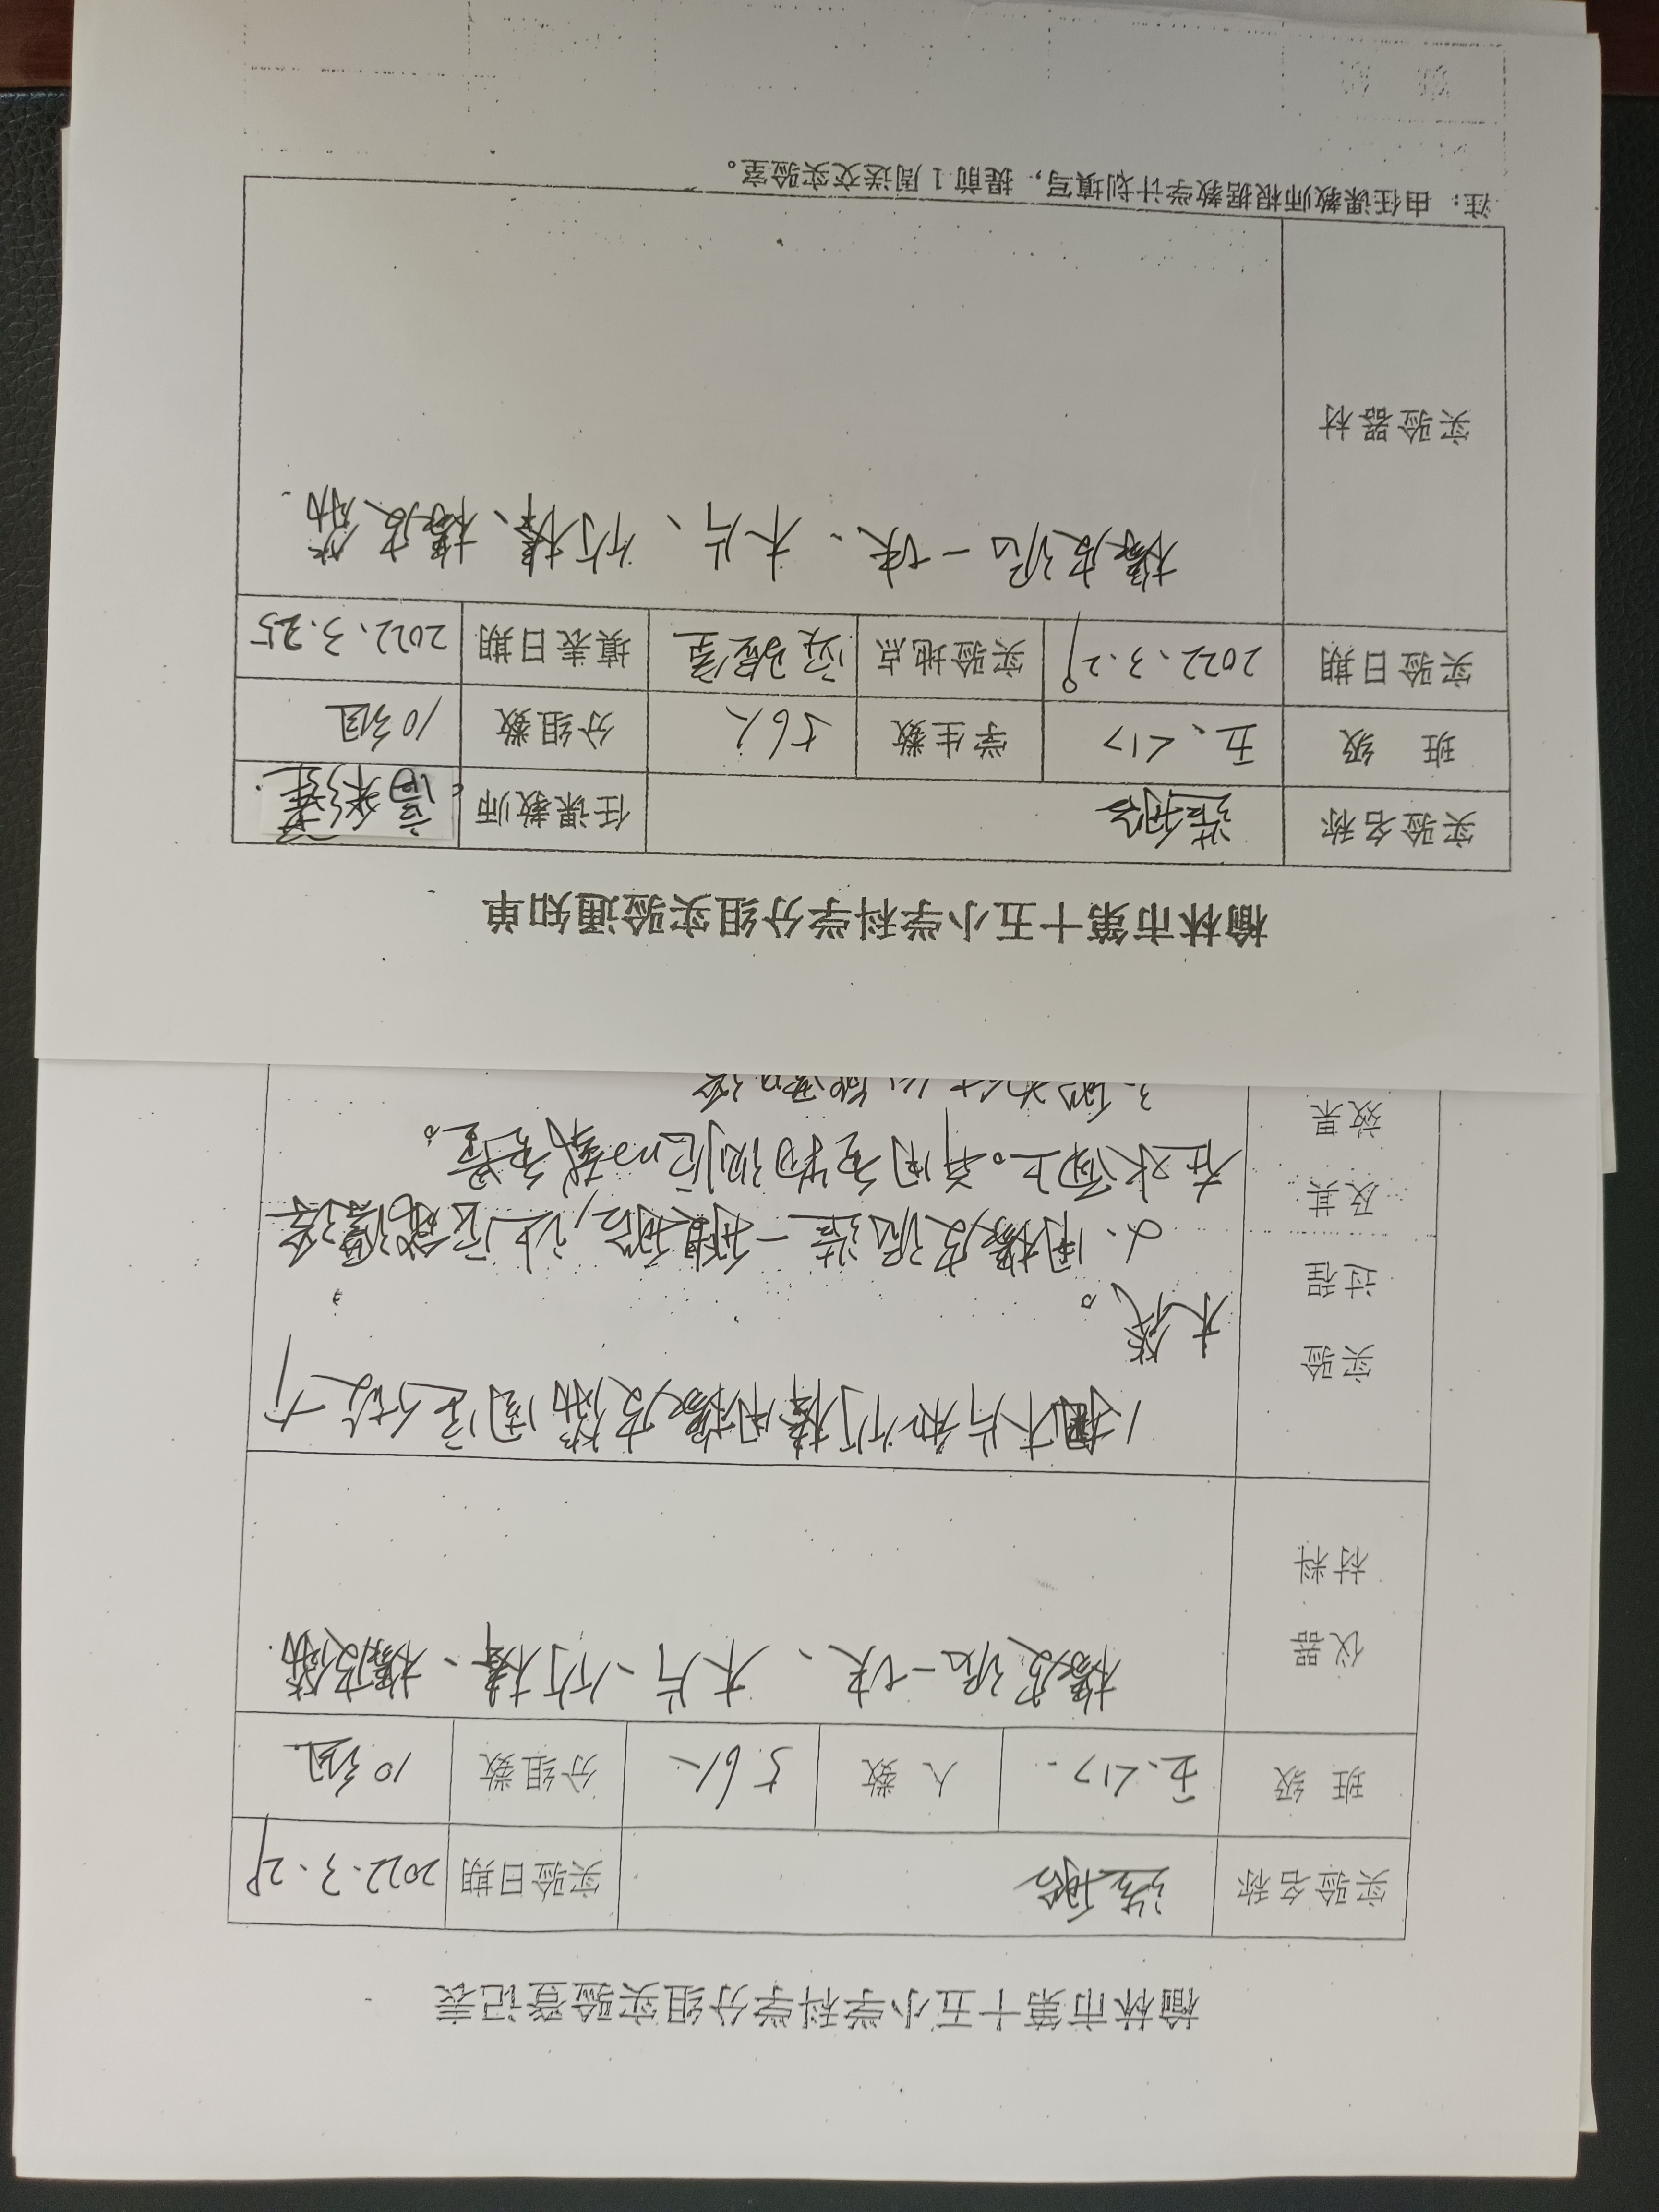 榆林市第十五小学科学分组实验登记表
实验名称 造船 实验日期 2022.3.29
班 级 五、<1> 人 数 56人 分组数 10组
仪器 材料 橡皮泥一块、木片、竹棒、橡皮筋
实验 过程 及其 效果
1、把木片和竹棒用橡皮筋固定做个
木筏。
2、用橡皮泥造一艘船,让它能漂浮
在水面上。并用重物测它的载重量。
榆林市第十五小学科学分组实验通知单
实验名称 造船 任课教师
班 级 五、<1> 学生数 56人 分组数 10组
实验日期 2022.3.29 实验地点 实验室 填表日期 2022.3.25
实验器材 橡皮泥一块、木片、竹棒、橡皮筋.
注：由任课教师根据教学计划填写，提前1周送交实验室。